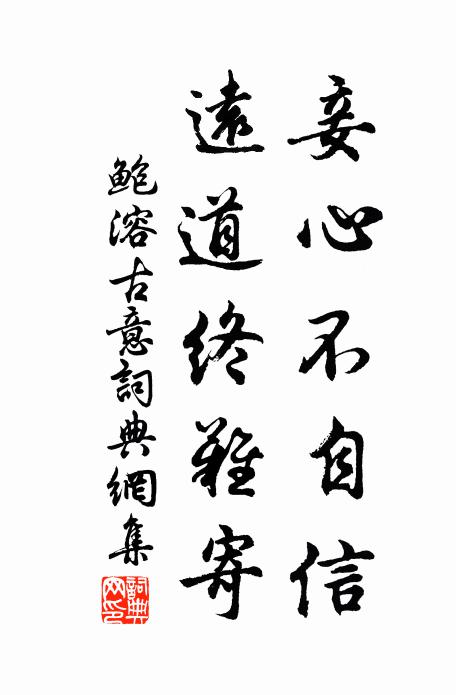 妾心不自信
遠道終難寄
鮑溶古意詞典網集
詞典網印